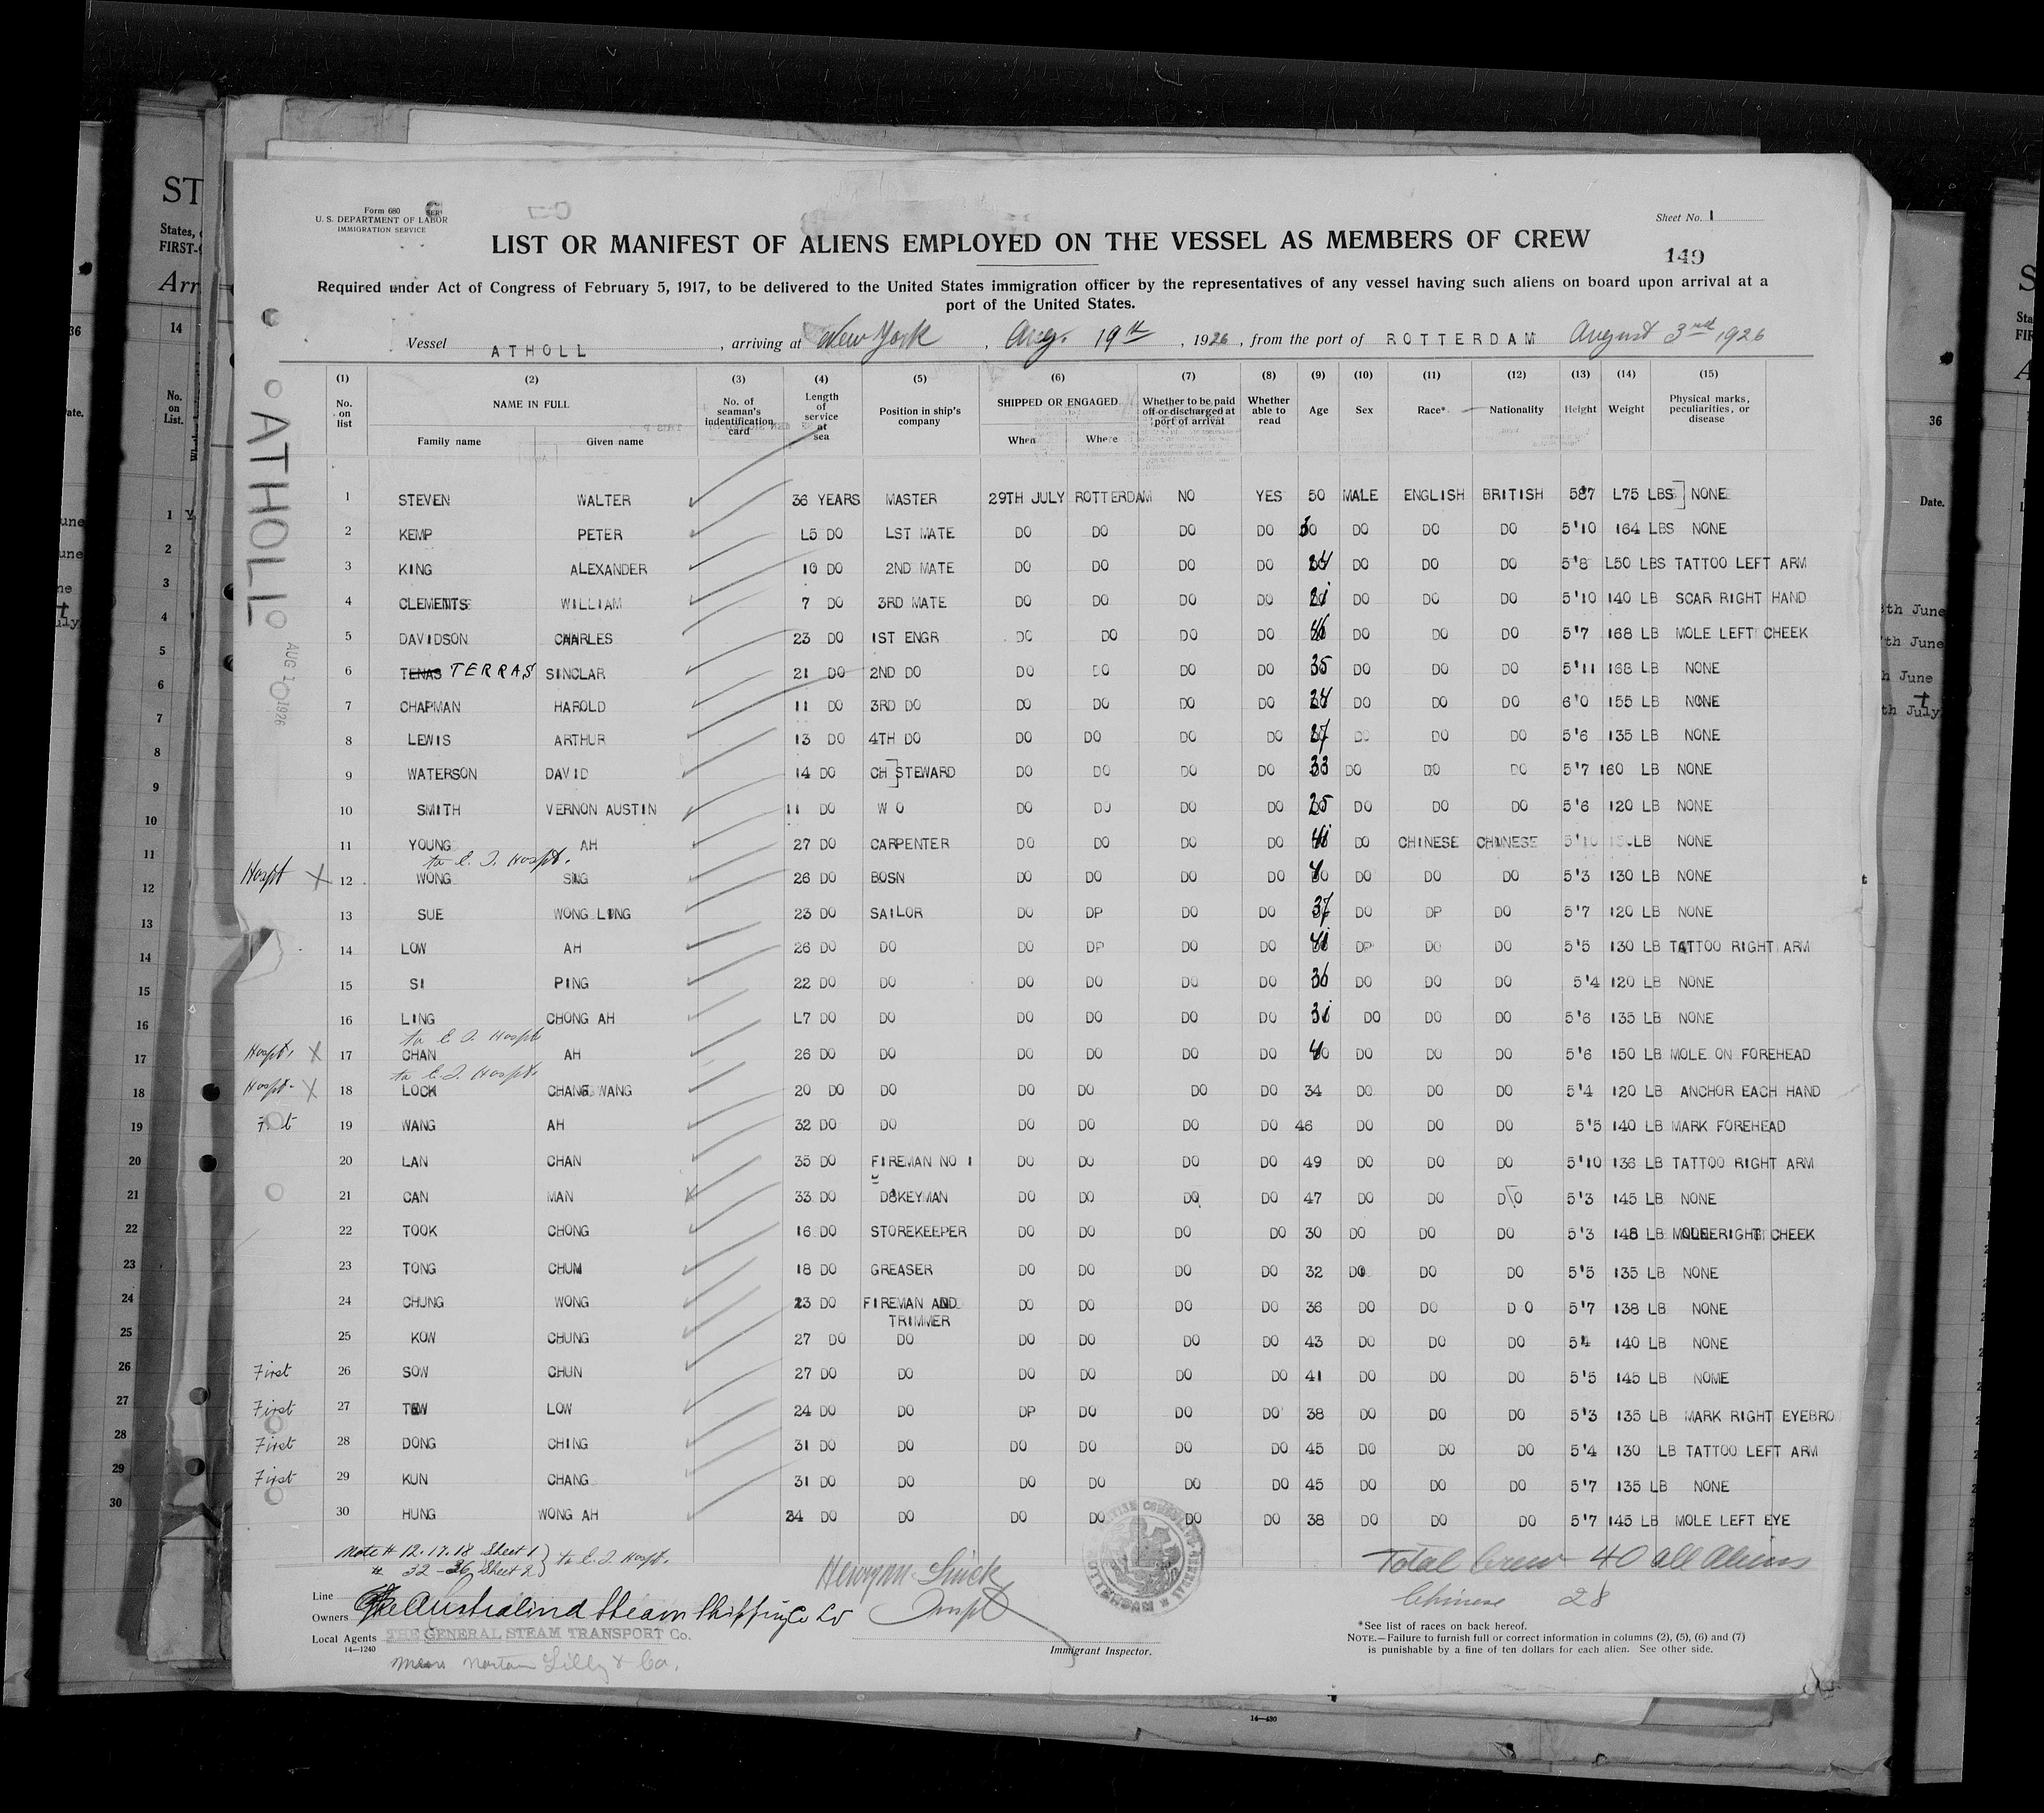 Form 680
U. S. DEPARTMENT OF LABOR
IMMIGRATION SERVICE
Sheet No. 1
LIST OR MANIFEST OF ALIENS EMPLOYED ON THE VESSEL AS MEMBERS OF CREW
149
Required under Act of Congress of February 5, 1917, to be delivered to the United States immigration officer by the representatives of any vessel having such aliens on board upon arrival at a
port of the United States.
Vessel ATHOLL, arriving at New York, Aug. 19th, 1926, from the port of ROTTERDAM August 3rd 1926
(1) (2) (3) (4) (5) (6) (7) (8) (9) (10) (11) (12) (13) (14) (15)
No. on list NAME IN FULL No. of seaman's indentification card Length of service at sea Position in ship's company SHIPPED OR ENGAGED Whether to be paid off or discharged at port of arrival Whether able to read Age Sex Race* Nationality Height Weight Physical marks, peculiarities, or disease
Family name Given name When Where
1 STEVEN WALTER 36 YEARS MASTER 29TH JULY ROTTERDAM NO YES 50 MALE ENGLISH BRITISH 5'7 L75 LBS NONE
2 KEMP PETER L5 DO LST MATE DO DO DO DO 30 DO DO DO 5'10 164 LBS NONE
3 KING ALEXANDER 10 DO 2ND MATE DO DO DO DO 24 DO DO DO 5'8 L50 LBS TATTOO LEFT ARM
4 CLEMENTS WILLIAM 7 DO 3RD MATE DO DO DO DO 21 DO DO DO 5'10 140 LB SCAR RIGHT HAND
5 DAVIDSON CHARLES 23 DO 1ST ENGR DO DO DO DO 46 DO DO DO 5'7 168 LB MOLE LEFT CHEEK
6 TENAS TERRAS SINCLAR 21 DO 2ND DO DO DO DO DO 35 DO DO DO 5'11 168 LB NONE
7 CHAPMAN HAROLD 11 DO 3RD DO DO DO DO DO DO DO DO 6'0 155 LB NONE
8 LEWIS ARTHUR 13 DO 4TH DO DO DO DO DO DO DO DO 5'6 135 LB NONE
9 WATERSON DAVID 14 DO CH STEWARD DO DO DO DO 33 DO DO DO 5'7 160 LB NONE
10 SMITH VERNON AUSTIN 11 DO W O DO DO DO DO 25 DO DO DO 5'6 120 LB NONE
11 YOUNG AH 27 DO CARPENTER DO DO DO DO 41 DO CHINESE CHINESE 5'10 LB NONE
to E. I. Hospt.
Hospt X 12 WONG SING 26 DO BOSN DO DO DO DO 40 DO DO DO 5'3 130 LB NONE
13 SUE WONG LING 23 DO SAILOR DO DP DO DO 37 DO DP DO 5'7 120 LB NONE
14 LOW AH 26 DO DO DO DP DO DO 41 DP DO DO 5'5 130 LB TATTOO RIGHT ARM
15 SI PING 22 DO DO DO DO DO DO 36 DO DO DO 5'4 120 LB NONE
16 LING CHONG AH L7 DO DO DO DO DO DO 31 DO DO DO 5'6 135 LB NONE
to E I. Hospt
Hospt. X 17 CHAN AH 26 DO DO DO DO DO DO 40 DO DO DO 5'6 150 LB MOLE ON FOREHEAD
to E.I. Hospt.
Hospt. X 18 LOCK CHANG WANG 20 DO DO DO DO DO DO 34 DO DO DO 5'4 120 LB ANCHOR EACH HAND
19 WANG AH 32 DO DO DO DO DO DO 46 DO DO DO 5'5 140 LB MARK FOREHEAD
20 LAN CHAN 35 DO FIREMAN NO 1 DO DO DO DO 49 DO DO DO 5'10 136 LB TATTOO RIGHT ARM
21 CAN MAN 33 DO DOKEYMAN DO DO DO DO 47 DO DO DO 5'3 145 LB NONE
22 TOOK CHONG 16 DO STOREKEEPER DO DO DO DO 30 DO DO DO 5'3 148 LB MOLE RIGHT CHEEK
23 TONG CHUM 18 DO GREASER DO DO DO DO 32 DO DO DO 5'5 135 LB NONE
24 CHUNG WONG 23 DO FIREMAN AND DO DO DO DO 36 DO DO DO 5'7 138 LB NONE
TRIMMER
25 KOW CHUNG 27 DO DO DO DO DO DO 43 DO DO DO 54 140 LB NONE
First 26 SOW CHUN 27 DO DO DO DO DO DO 41 DO DO DO 5'5 145 LB NOME
First 27 TEW LOW 24 DO DO DP DO DO DO 38 DO DO DO 5'3 135 LB MARK RIGHT EYEBRO
First 28 DONG CHING 31 DO DO DO DO DO DO 45 DO DO DO 5'4 130 LB TATTOO LEFT ARM
First 29 KUN CHANG 31 DO DO DO DO DO DO 45 DO DO DO 5'7 135 LB NONE
30 HUNG WONG AH 24 DO DO DO DO DO DO 38 DO DO DO 5'7 145 LB MOLE LEFT EYE
Note # 12.17.18 Sheet 1 } to E. I. Hospt.
# 32-36 Sheet 2
Total Crew 40 all Aliens
Chinese 28
Line
Owners The Australind Steam Shipping Co Ld
Local Agents THE GENERAL STEAM TRANSPORT Co.
14—1240
Norton Lilly & Co.
Inspt
Immigrant Inspector.
*See list of races on back hereof.
NOTE.—Failure to furnish full or correct information in columns (2), (5), (6) and (7)
is punishable by a fine of ten dollars for each alien. See other side.
ATHOLL
AUG 1 1926
ST
States,
FIRST-
Arr
14
No. on List.
36
Date.
14—430